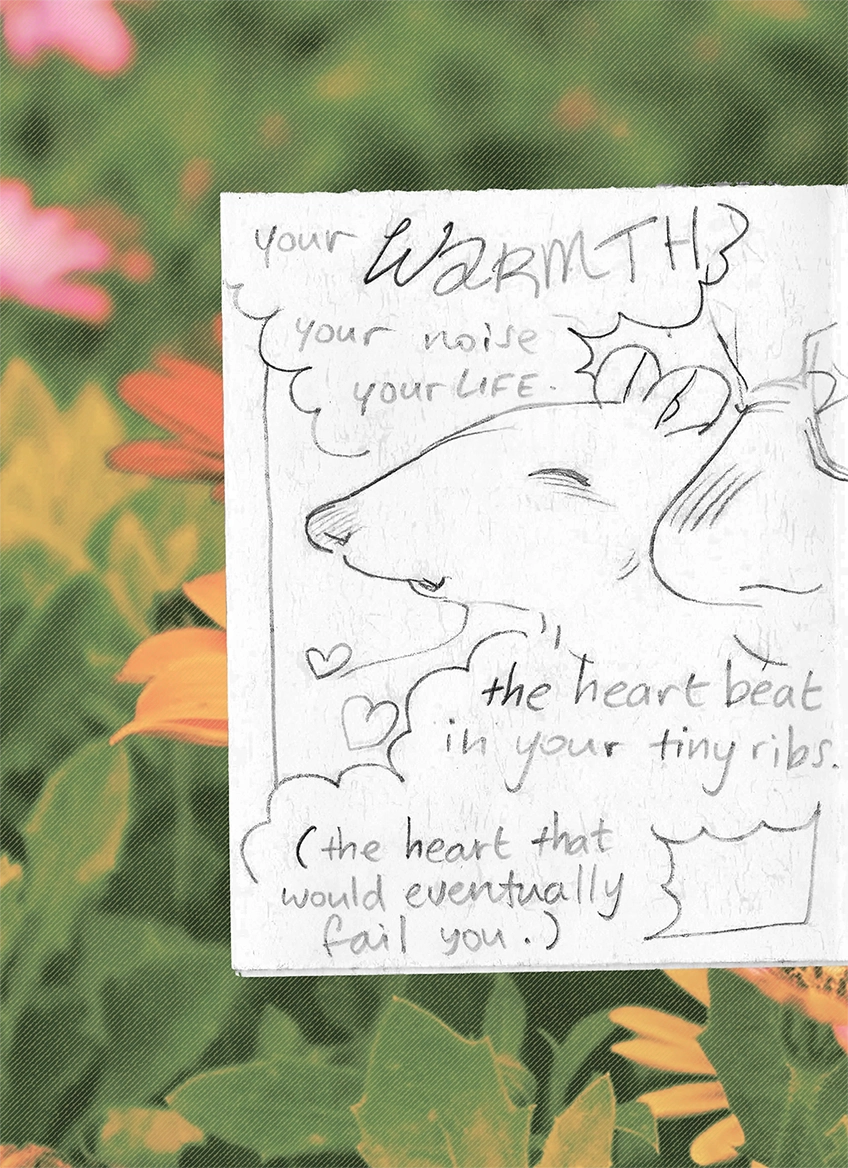 your WARMTH
your noise
your LIFE.
the heart beat
in your tiny ribs.
(the heart that
would eventually
fail you.)